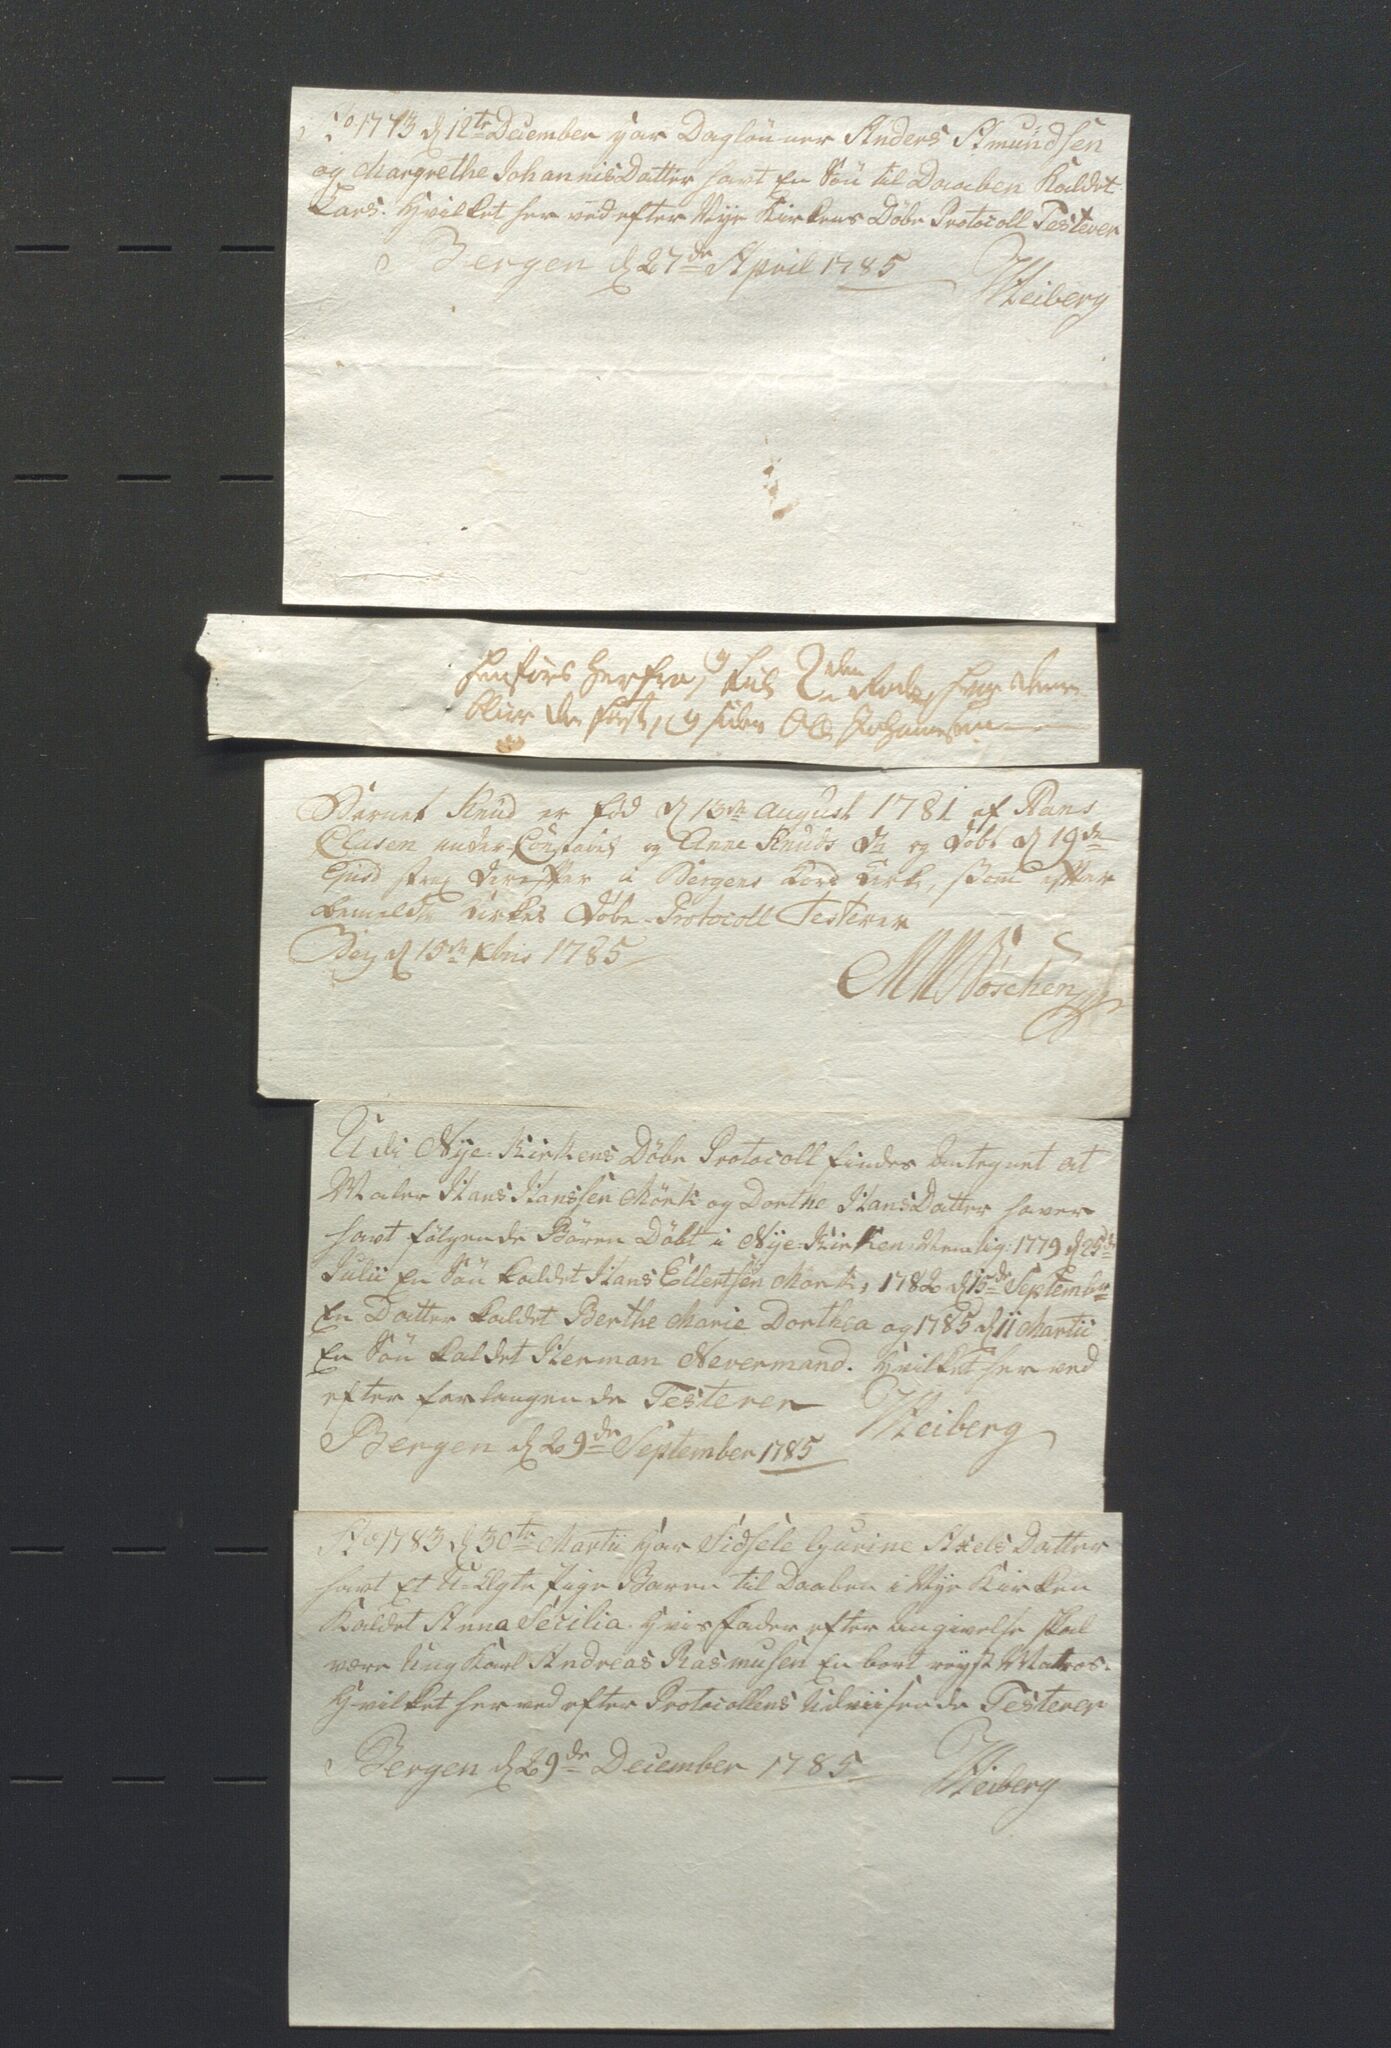 Ao 1773 d 12te December har Daglönner Anders Amundsen
og Margrethe JohannisDatter havt En Sön til Daaben Kaldet
Lars. Hvilket her ved efter Nye Kirkens Döbe Protocoll Testerer
Bergen d 27de April 1785 Heiberg
henförs herfra, til 2den Rode, hvor denne
bliver den förste, og siden Ole Johannesen
Barnet Knud er föd d 13de August 1781 af Hans
Clasen under og Anne Knuds Dr og döbt d 19de
Ejusd strax derefter i Bergens Kirke, som efter
bemeldte Kirkes Döbe-Protocoll Testerer
d 15de Xbris 1785
Böschen
Udi Nye-Kirkens Döbe Protocoll findes Antegnet at
Maler Hans Hanssen Mörk og Dorthe HansDatter haver
havt fölgende Börn Döbt i Nye-Kirken, Nemlig: 1779 d 25de
Julii En Sön kaldet Hans Ellertsen Mörk, 1782 d 15de September
En Datter kaldet Berthe Marie Dorthea og 1785 d 11 Martii
En Sön kaldet Herman Nevermand. Hvilket her ved
efter forlangende Testerer Heiberg
Bergen d 29de September 1785
Ao 1783 d 30te Martii har Sidsele Gurine Axels Datter
havt Et U-Ægte Pige Barn til Daaben i Nye Kirken
Kaldet Anna Secilia. Hvis fader efter Angivelse skal
være Ung Karl Andreas Rasmusen En bort reyst Matros.
Hvilket her ved efter Protocollens Udviisende Testerer
Bergen d 29de December 1785 Heiberg